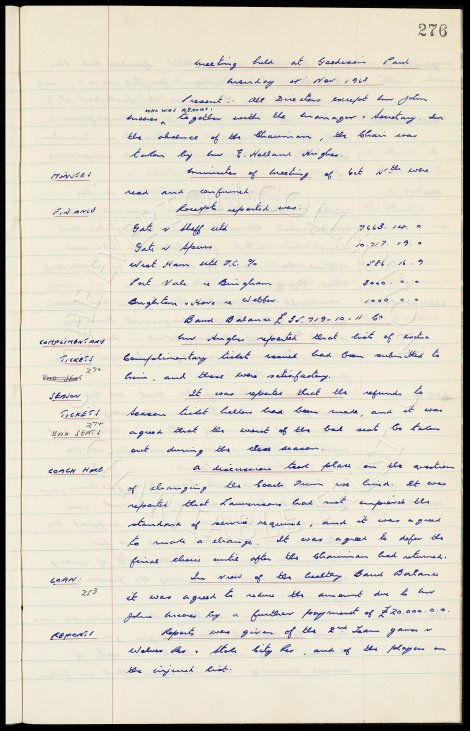 276
Meeting held at Goodison Park
Monday 4th Nov. 1963
Present:- All Directors except Mr John
who was abroad.
Moores, together with the Manager & Secretary. In
the absence of the Chairman, the Chair was
taken by Mr E. Holland Hughes.
MINUTES Minutes of Meeting of 1st Nth were
read and confirmed.
FINANCE Receipts reported were:
Gate v Sheff Utd 7663. 14. 0
Gate v Spurs 10.717. 19. 0
West Ham Utd F.C. % 586. 16. 9
Port Vale re Bingham 3000. 0. 0
Brighton & Hove re Webber 1000. 0. 0
Bank Balance £35,719-10-11 Cr
COMPLIMENTARY Mr Hughes reported that lists of extra
TICKETS Complimentary tickets issued had been submitted to
274
BAD SEAT him, and these were satisfactory.
SEASON It was reported that the refunds to
TICKETS Season ticket holders had been made, and it was
274
BAD SEATS agreed that the worst of the bad seats be taken
out during the close season.
COACH HIRE A discussion took place on the question
of changing the Coach Firm we hired. It was
reported that Lawrensons had not improved the
standard of service required, and it was agreed
to make a change. It was agreed to defer the
final choice until after the Chairman had returned.
LOAN In view of the healthy Bank Balance
253 it was agreed to reduce the amount due to Mr
John Moores by a further payment of £20.000.0.0.
REPORTS Reports were given of the 2nd Team games v
Wolves Res & Stoke City Res, and of the players on
the injured list.